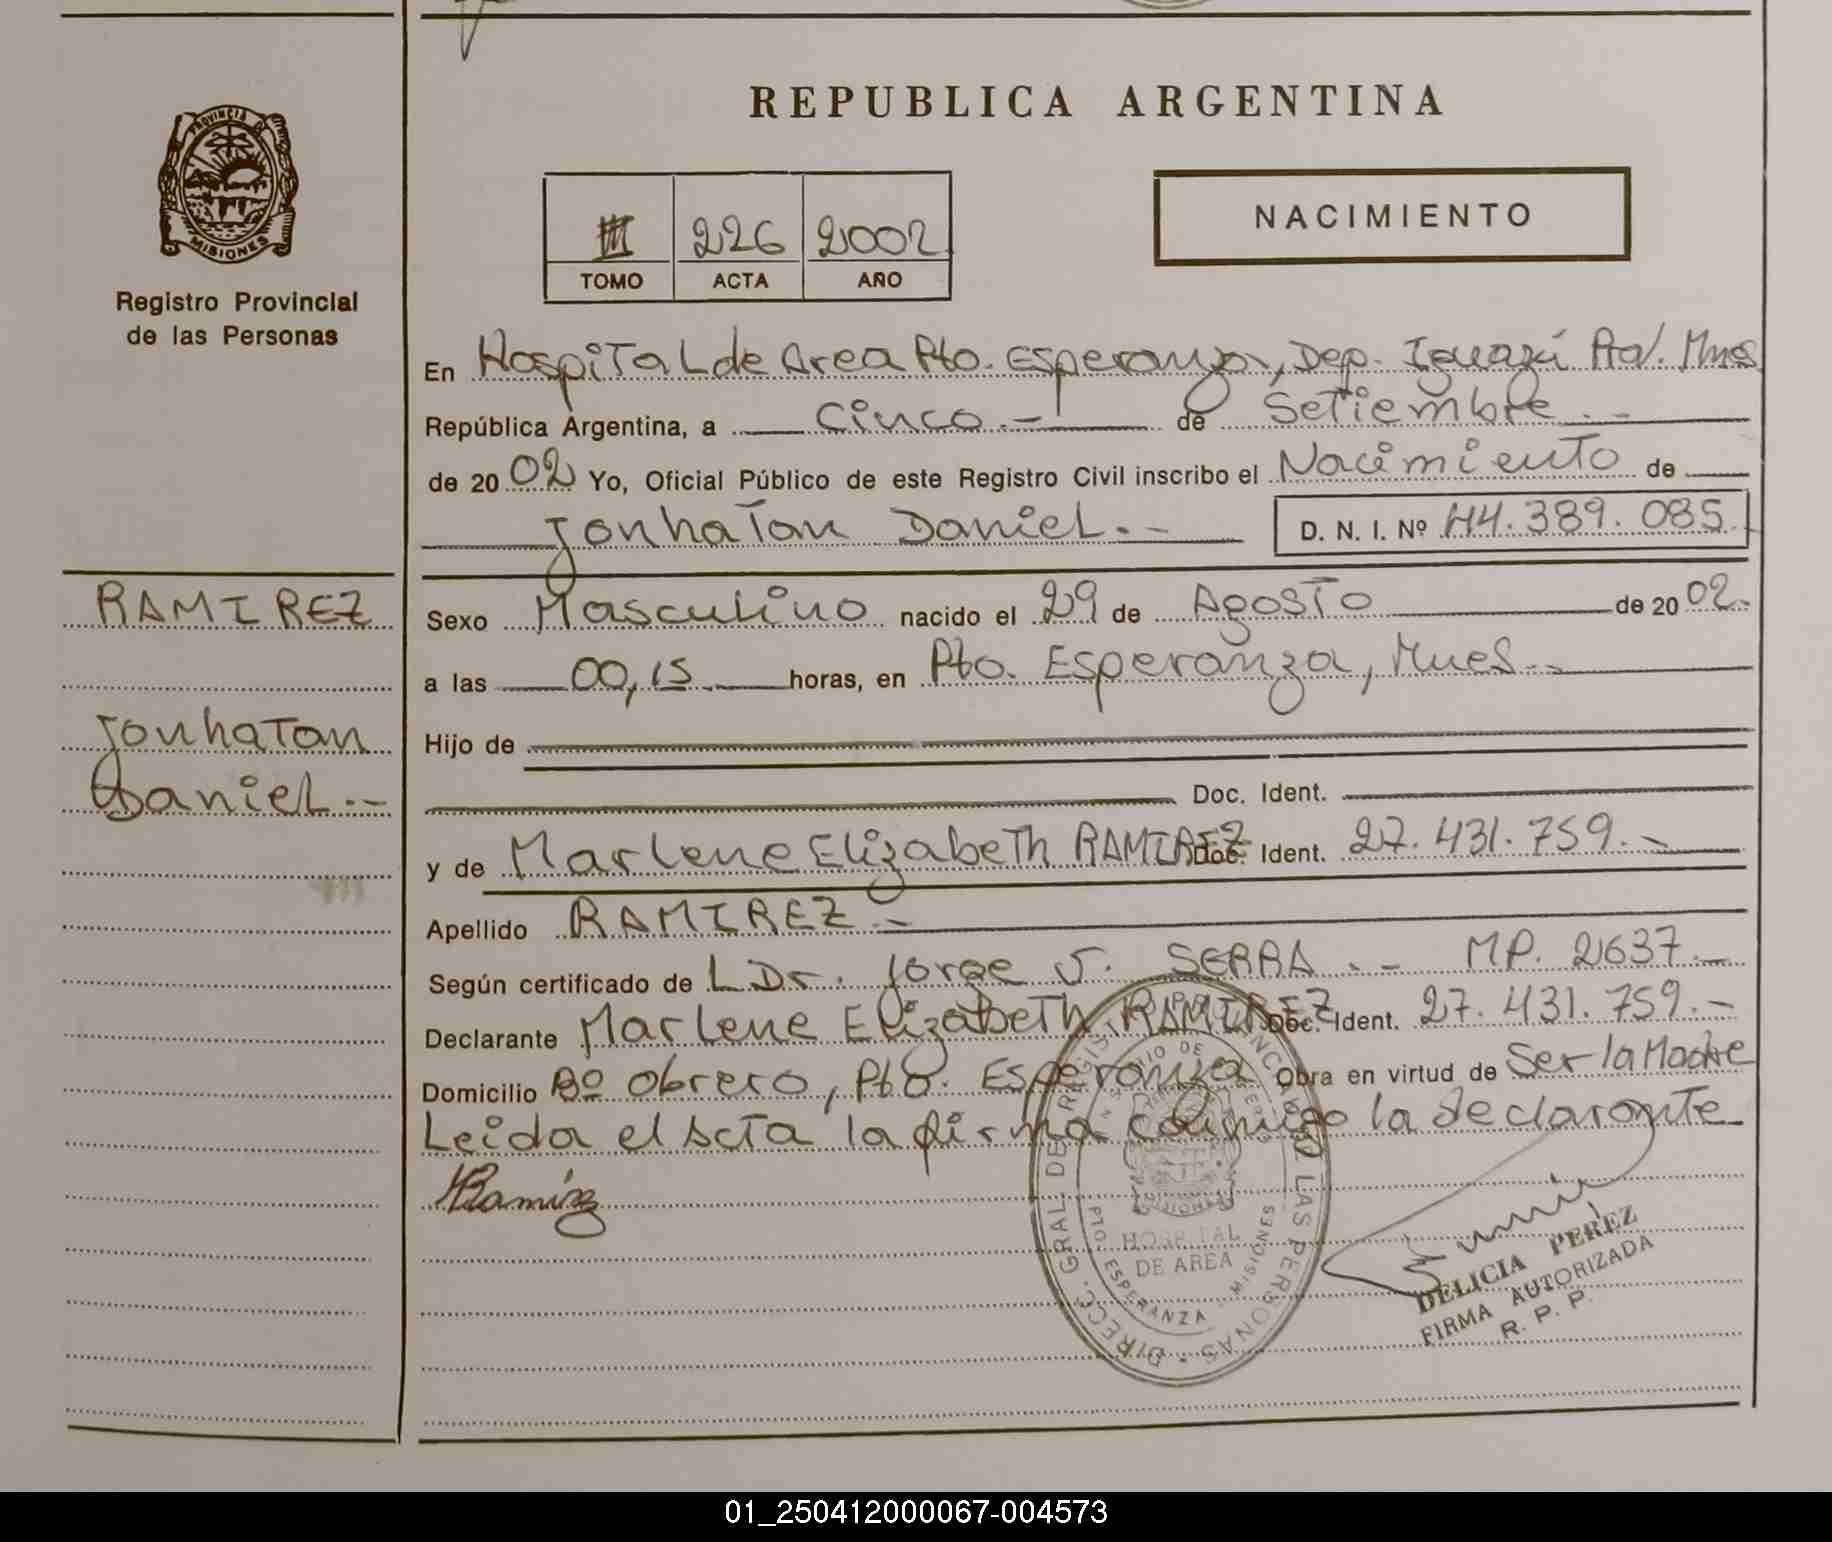 REPUBLICA ARGENTINA
PROVINCIA DE
MISIONES
Registro Provincial
de las Personas
III 226 2002
TOMO ACTA AÑO
NACIMIENTO
En Hospital de Area Pto. Esperanza, Dep. Iguazú Pcia. Mnes
República Argentina, a Cinco.- de Setiembre.-
de 2002 Yo, Oficial Público de este Registro Civil inscribo el Nacimiento de
Jonhatan Daniel.- D. N. I. Nº 44.389.085.
RAMIREZ
Jonhatan
Daniel.-
Sexo Masculino nacido el 29 de Agosto de 2002.
a las 00,15 horas, en Pto. Esperanza, Mnes.-
Hijo de
Doc. Ident.
y de Marlene Elizabeth RAMIREZ Doc. Ident. 27.431.759.-
Apellido RAMIREZ.-
Según certificado de L Dr. Jorge J. SERRA.- MP. 2637.-
Declarante Marlene Elizabeth RAMIREZ Doc. Ident. 27.431.759.-
Domicilio Bº Obrero, Pto. Esperanza Obra en virtud de Ser la Madre
Leida el Acta la firma conmigo la declarante
Ramirez
DIRECC. GRAL. DE REGISTRO LAS PERSONAS
HOSPITAL
DE AREA
PTO. ESPERANZA - MISIONES
DELICIA PEREZ
FIRMA AUTORIZADA
R. P. P.
01_250412000067-004573